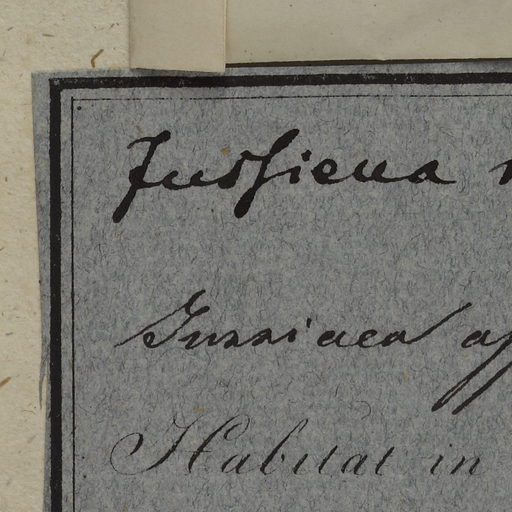 Jussieua
Jussiaea
Habitat in